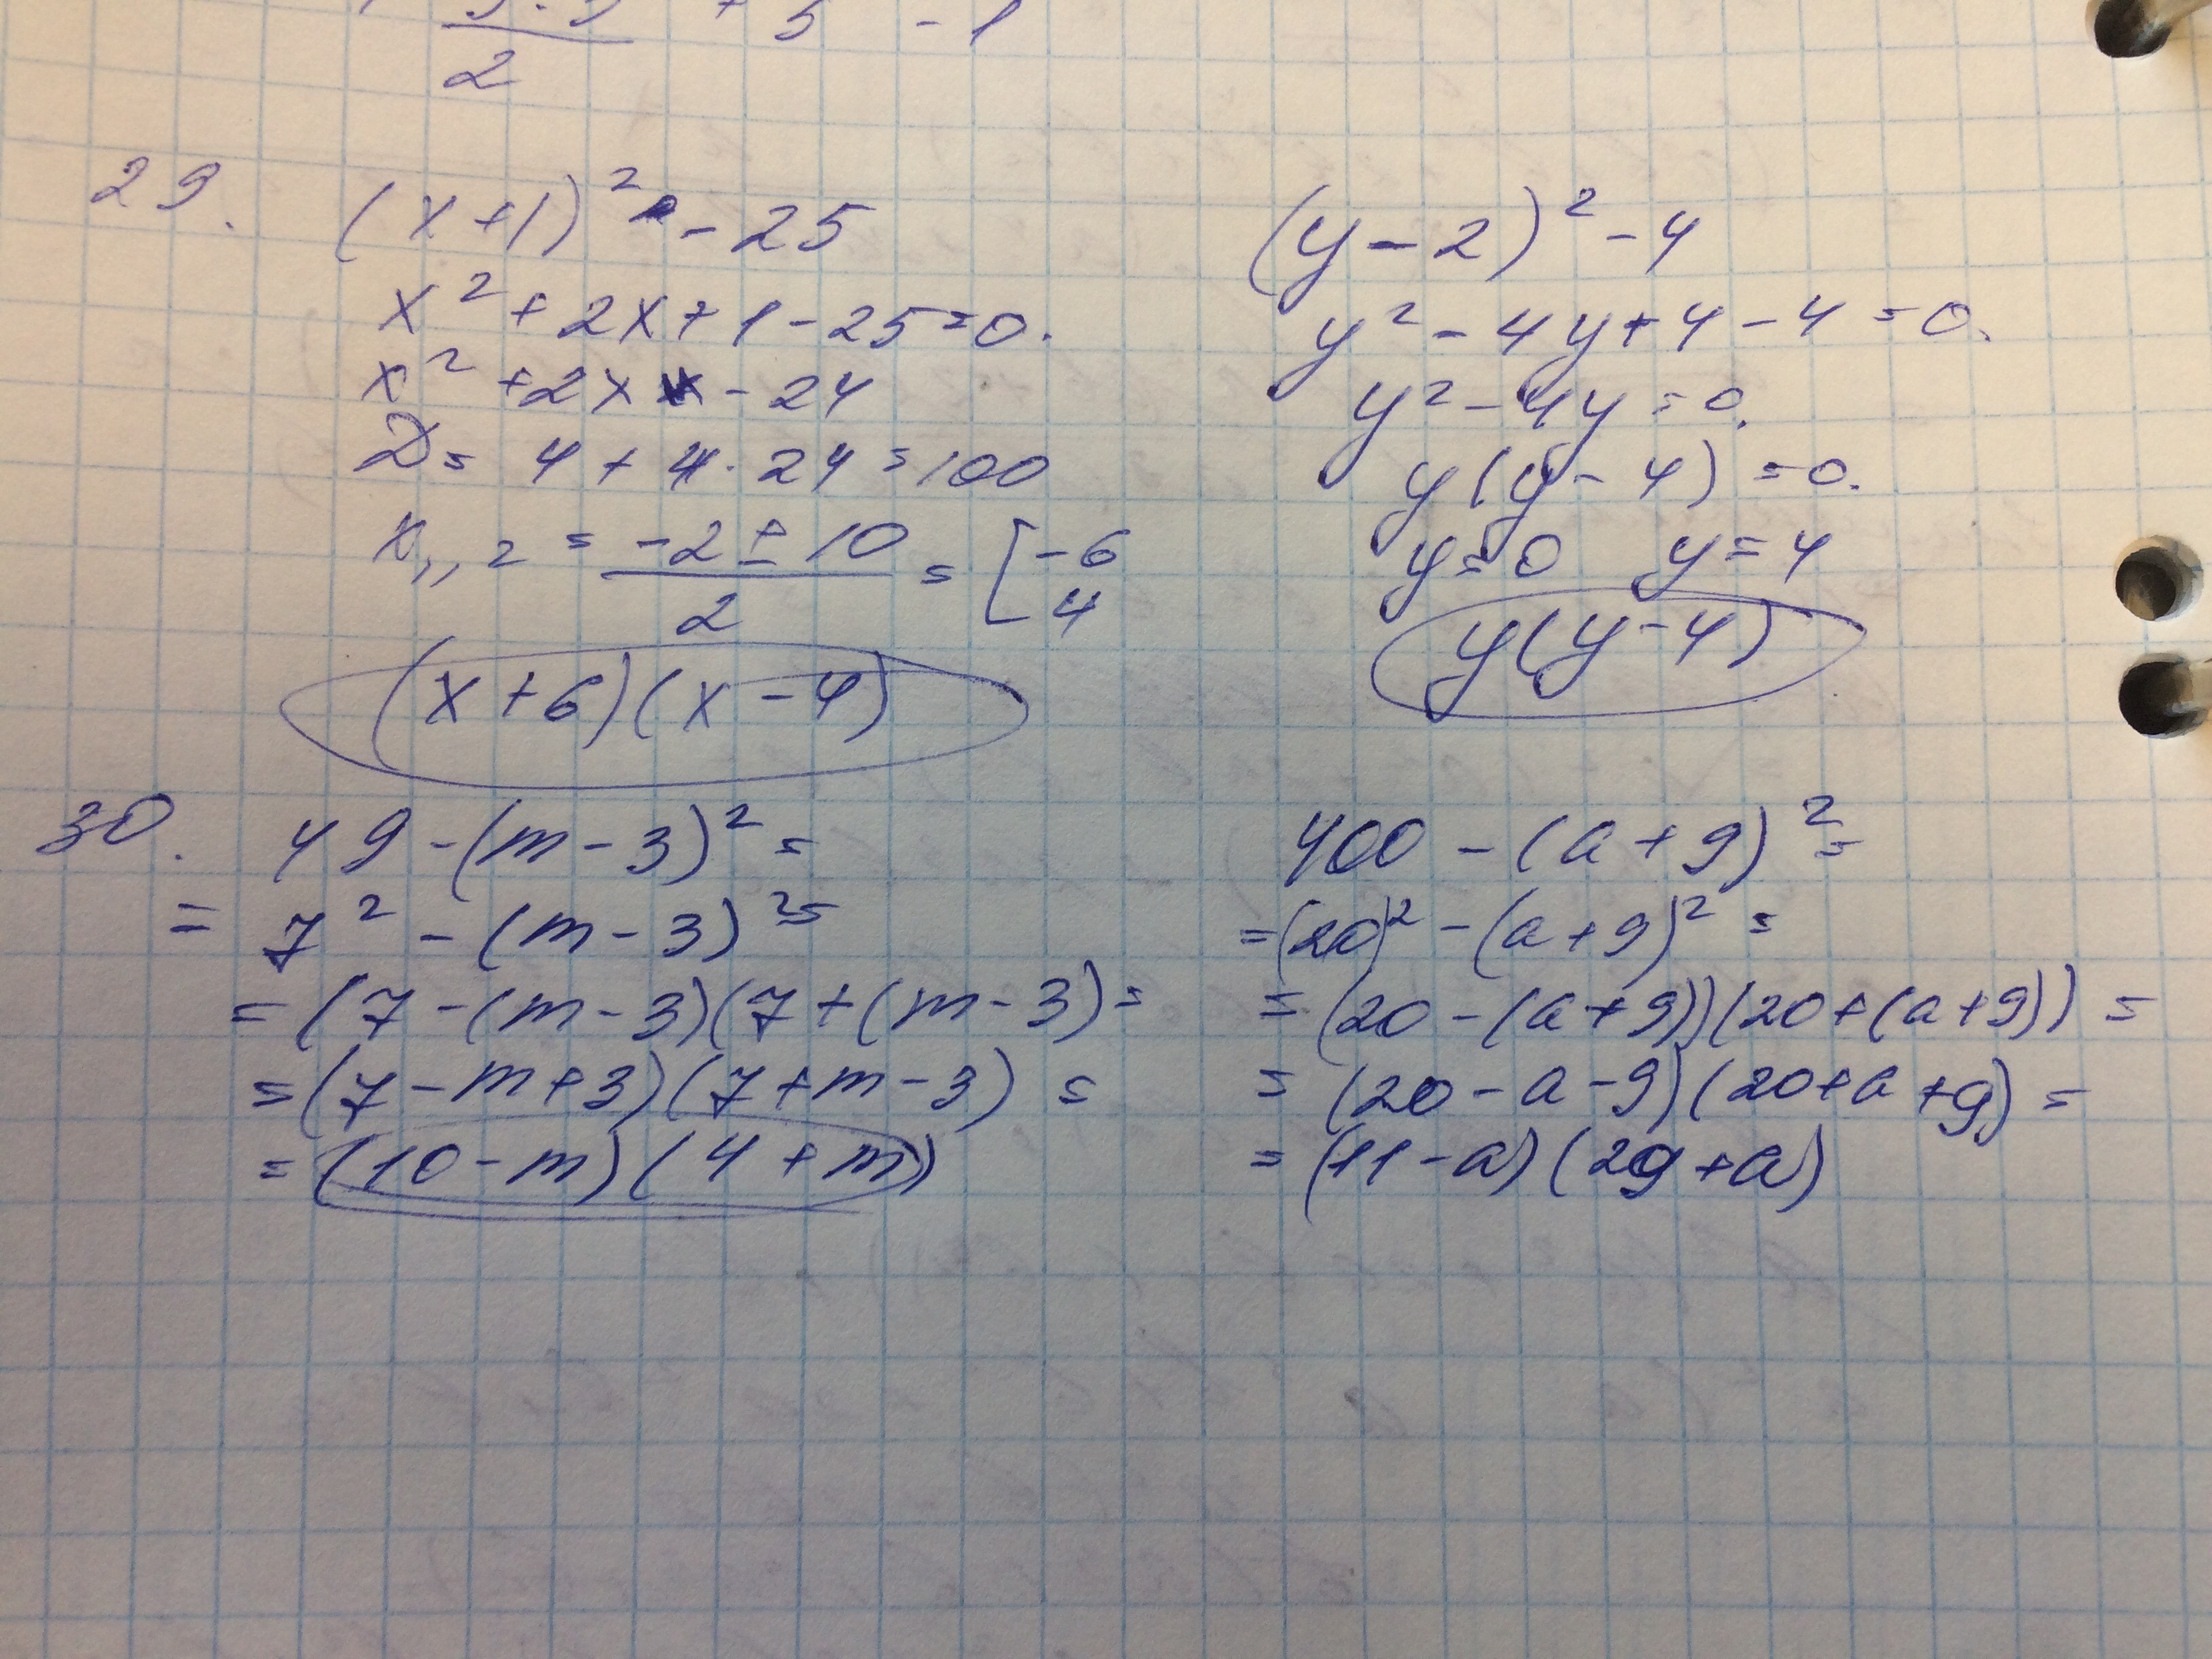 2 + 5 - 1
29. (x+1)² - 25
x² + 2x + 1 - 25 = 0.
x² + 2x - 24
D = 4 + 4 · 24 = 100
x₁,₂ = (-2 ± 10)/2 = [-6
4
(x+6)(x-4)
(y-2)² - 4
y² - 4y + 4 - 4 = 0.
y² - 4y = 0.
y(y-4) = 0.
y = 0 y = 4
y(y-4)
30. 49 - (m-3)² =
= 7² - (m-3)² =
= (7 - (m-3)(7 + (m-3) =
= (7 - m + 3)(7 + m - 3) =
= (10 - m)(4 + m)
400 - (a+9)² =
= (20)² - (a+9)² =
= (20 - (a+9))(20 + (a+9)) =
= (20 - a - 9)(20 + a + 9) =
= (11 - a)(29 + a)